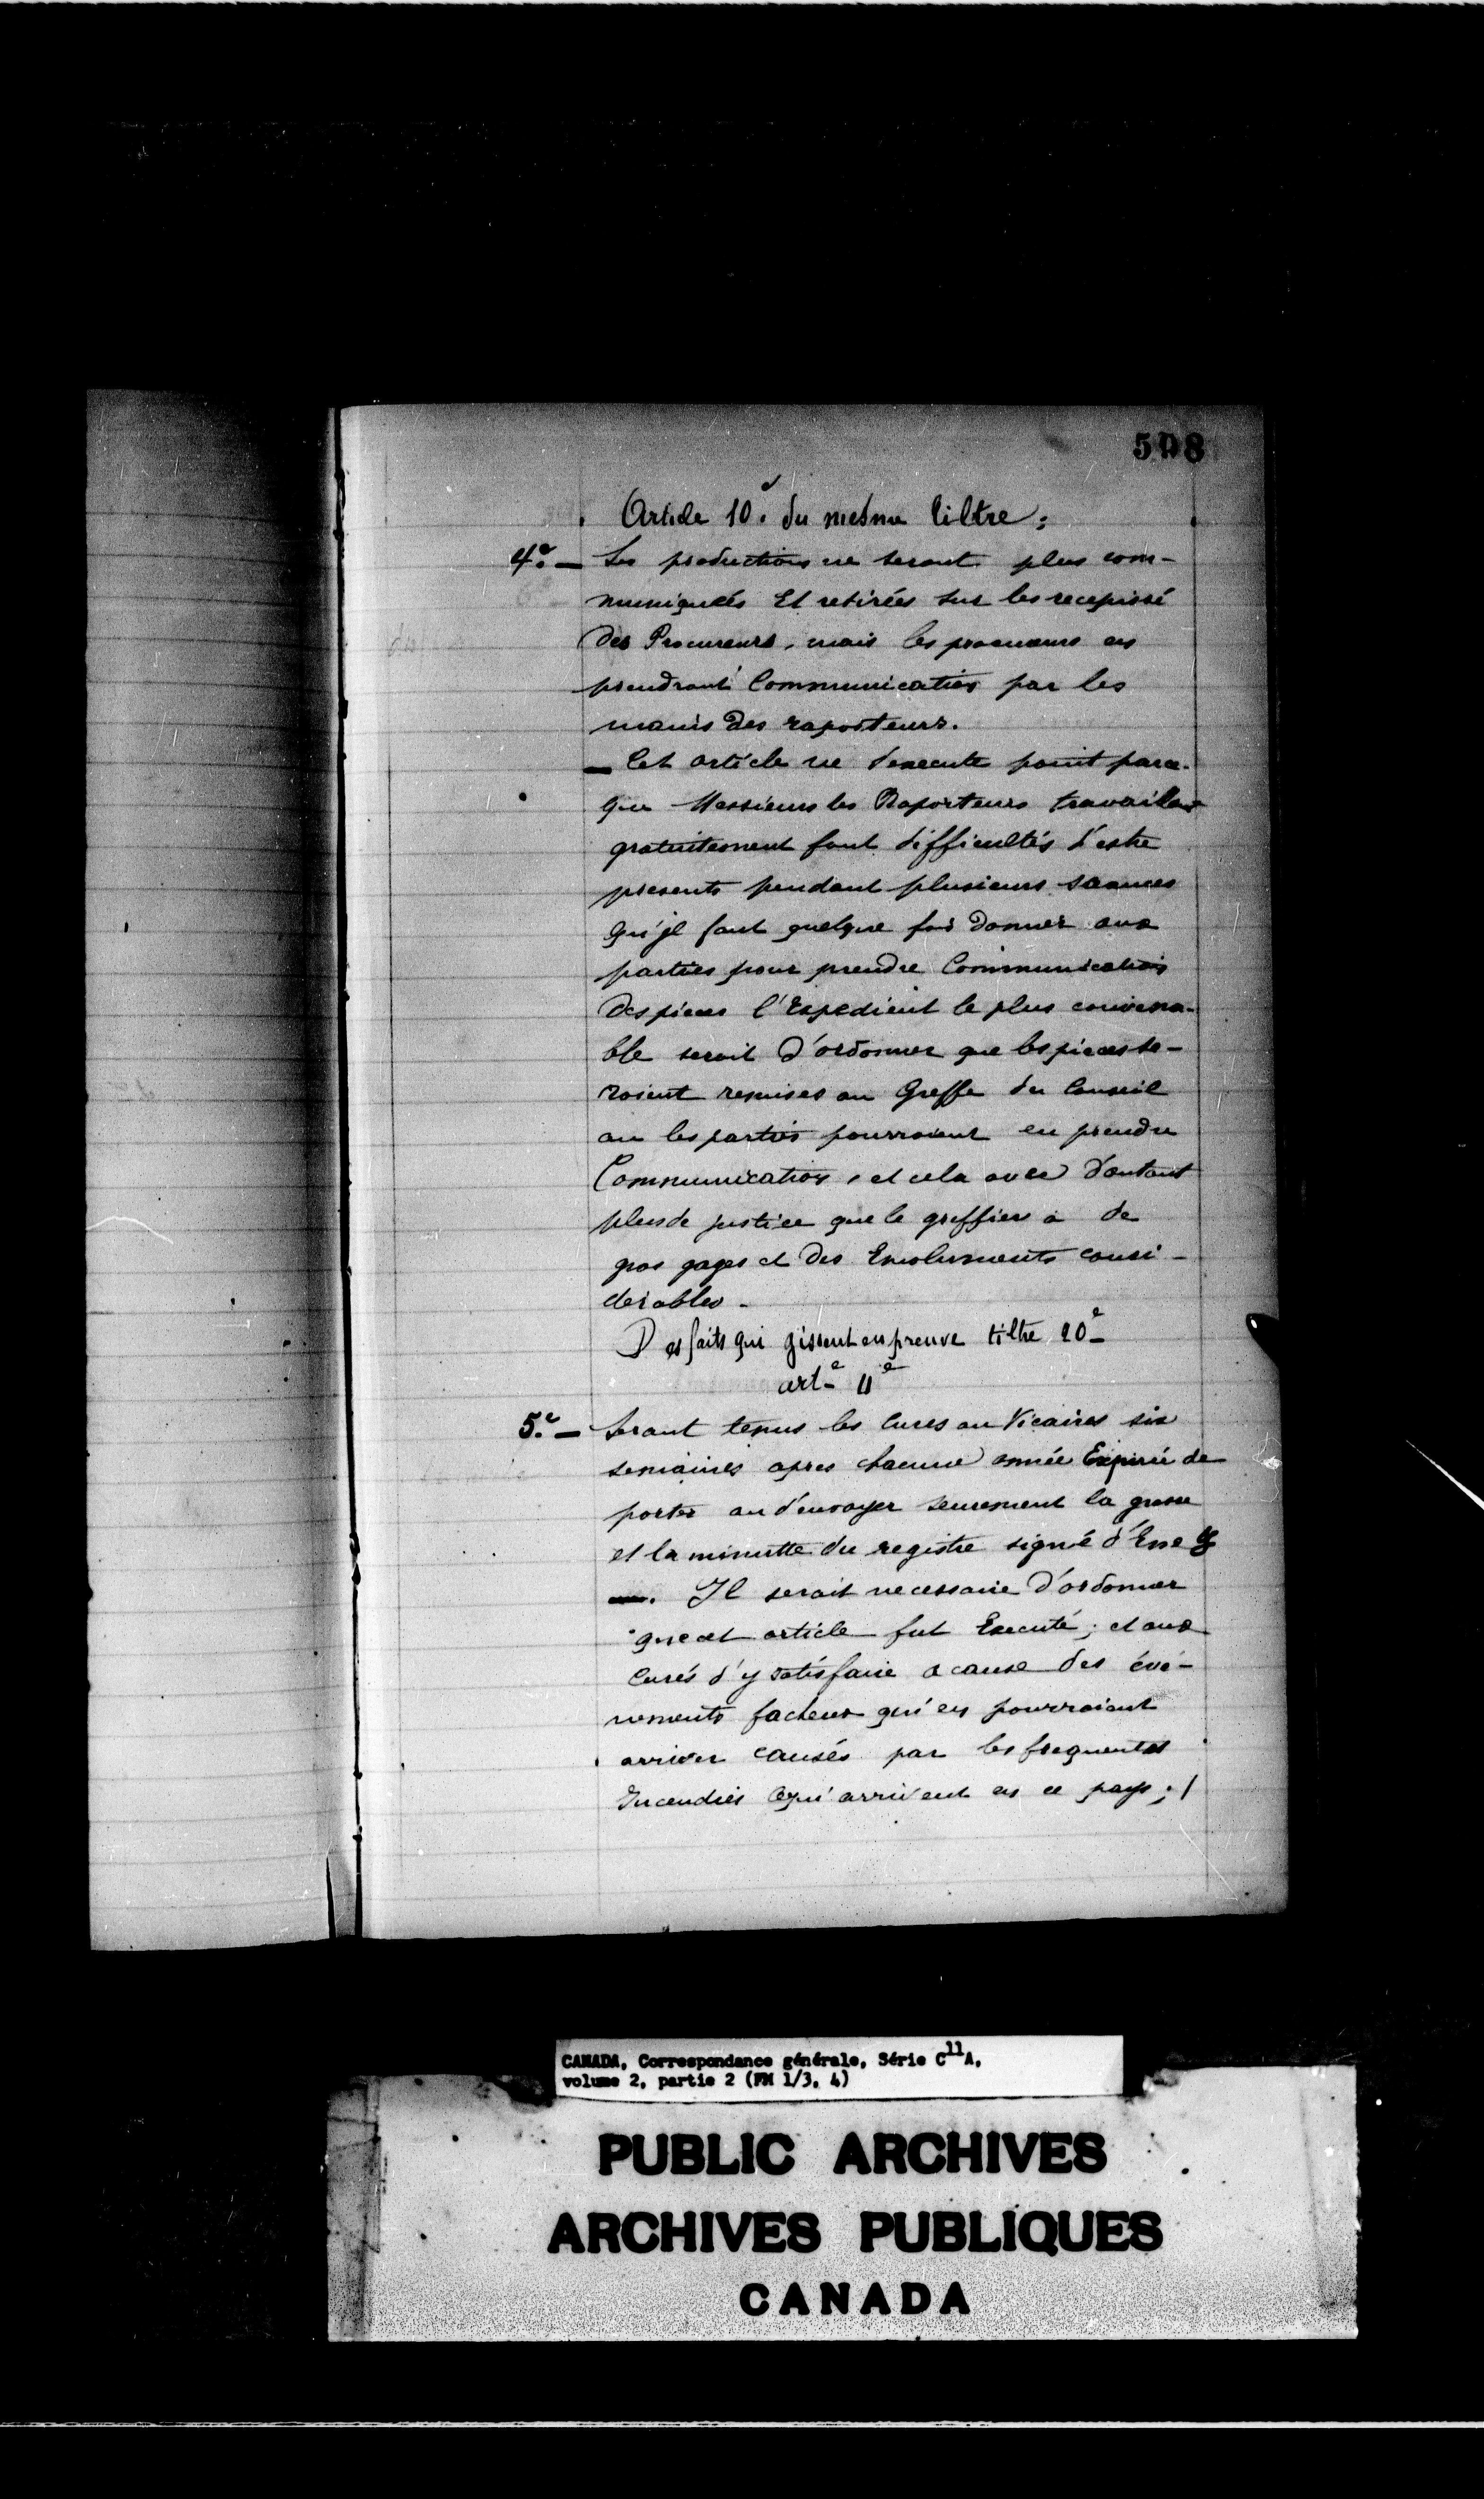 508
Article 10.e du mesme tiltre;
4.e — Les productions ne seront plus com-
muniquées Et retirées sur les recepissé
des Procureurs, mais les procureurs en
prendront Communication par les
mains des raporteurs.
— Cet article ne s'execute point parce-
que Messieurs les Raporteurs travaillans
gratuitement font difficultés d'estre
presents pendant plusieurs séances
qu'jl faut quelque fois donner aux
parties pour prendre Communication
des pieces l'Expedient le plus convena-
ble seroit d'ordonner que les pieces se-
roient remises au Greffe du Conseil
ou les parties pourroient en prendre
Communication, et cela avec d'autant
plus de justice que le greffier a de
gros gages et des Emoluments consi-
derables.
Des faits qui gissent en preuve tiltre 20e
art.e 11e
5.e — Seront tenus les Curés ou Vicaires six
semaines apres chacune année Expirée de
porter ou d'envoyer seurement la grosse
et la minutte du registre signé d'Eux &
—. Il seroit necessaire d'ordonner
que cet article fut Executé; et aux
Curés d'y satisfaire a cause des évé-
nements facheux qui en pourroient
arriver causés par les frequentes
Incendies qui arrivent en ce pays; /
CANADA, Correspondance générale, Série C11A,
volume 2, partie 2 (FM 1/3, 4)
PUBLIC ARCHIVES
ARCHIVES PUBLIQUES
CANADA